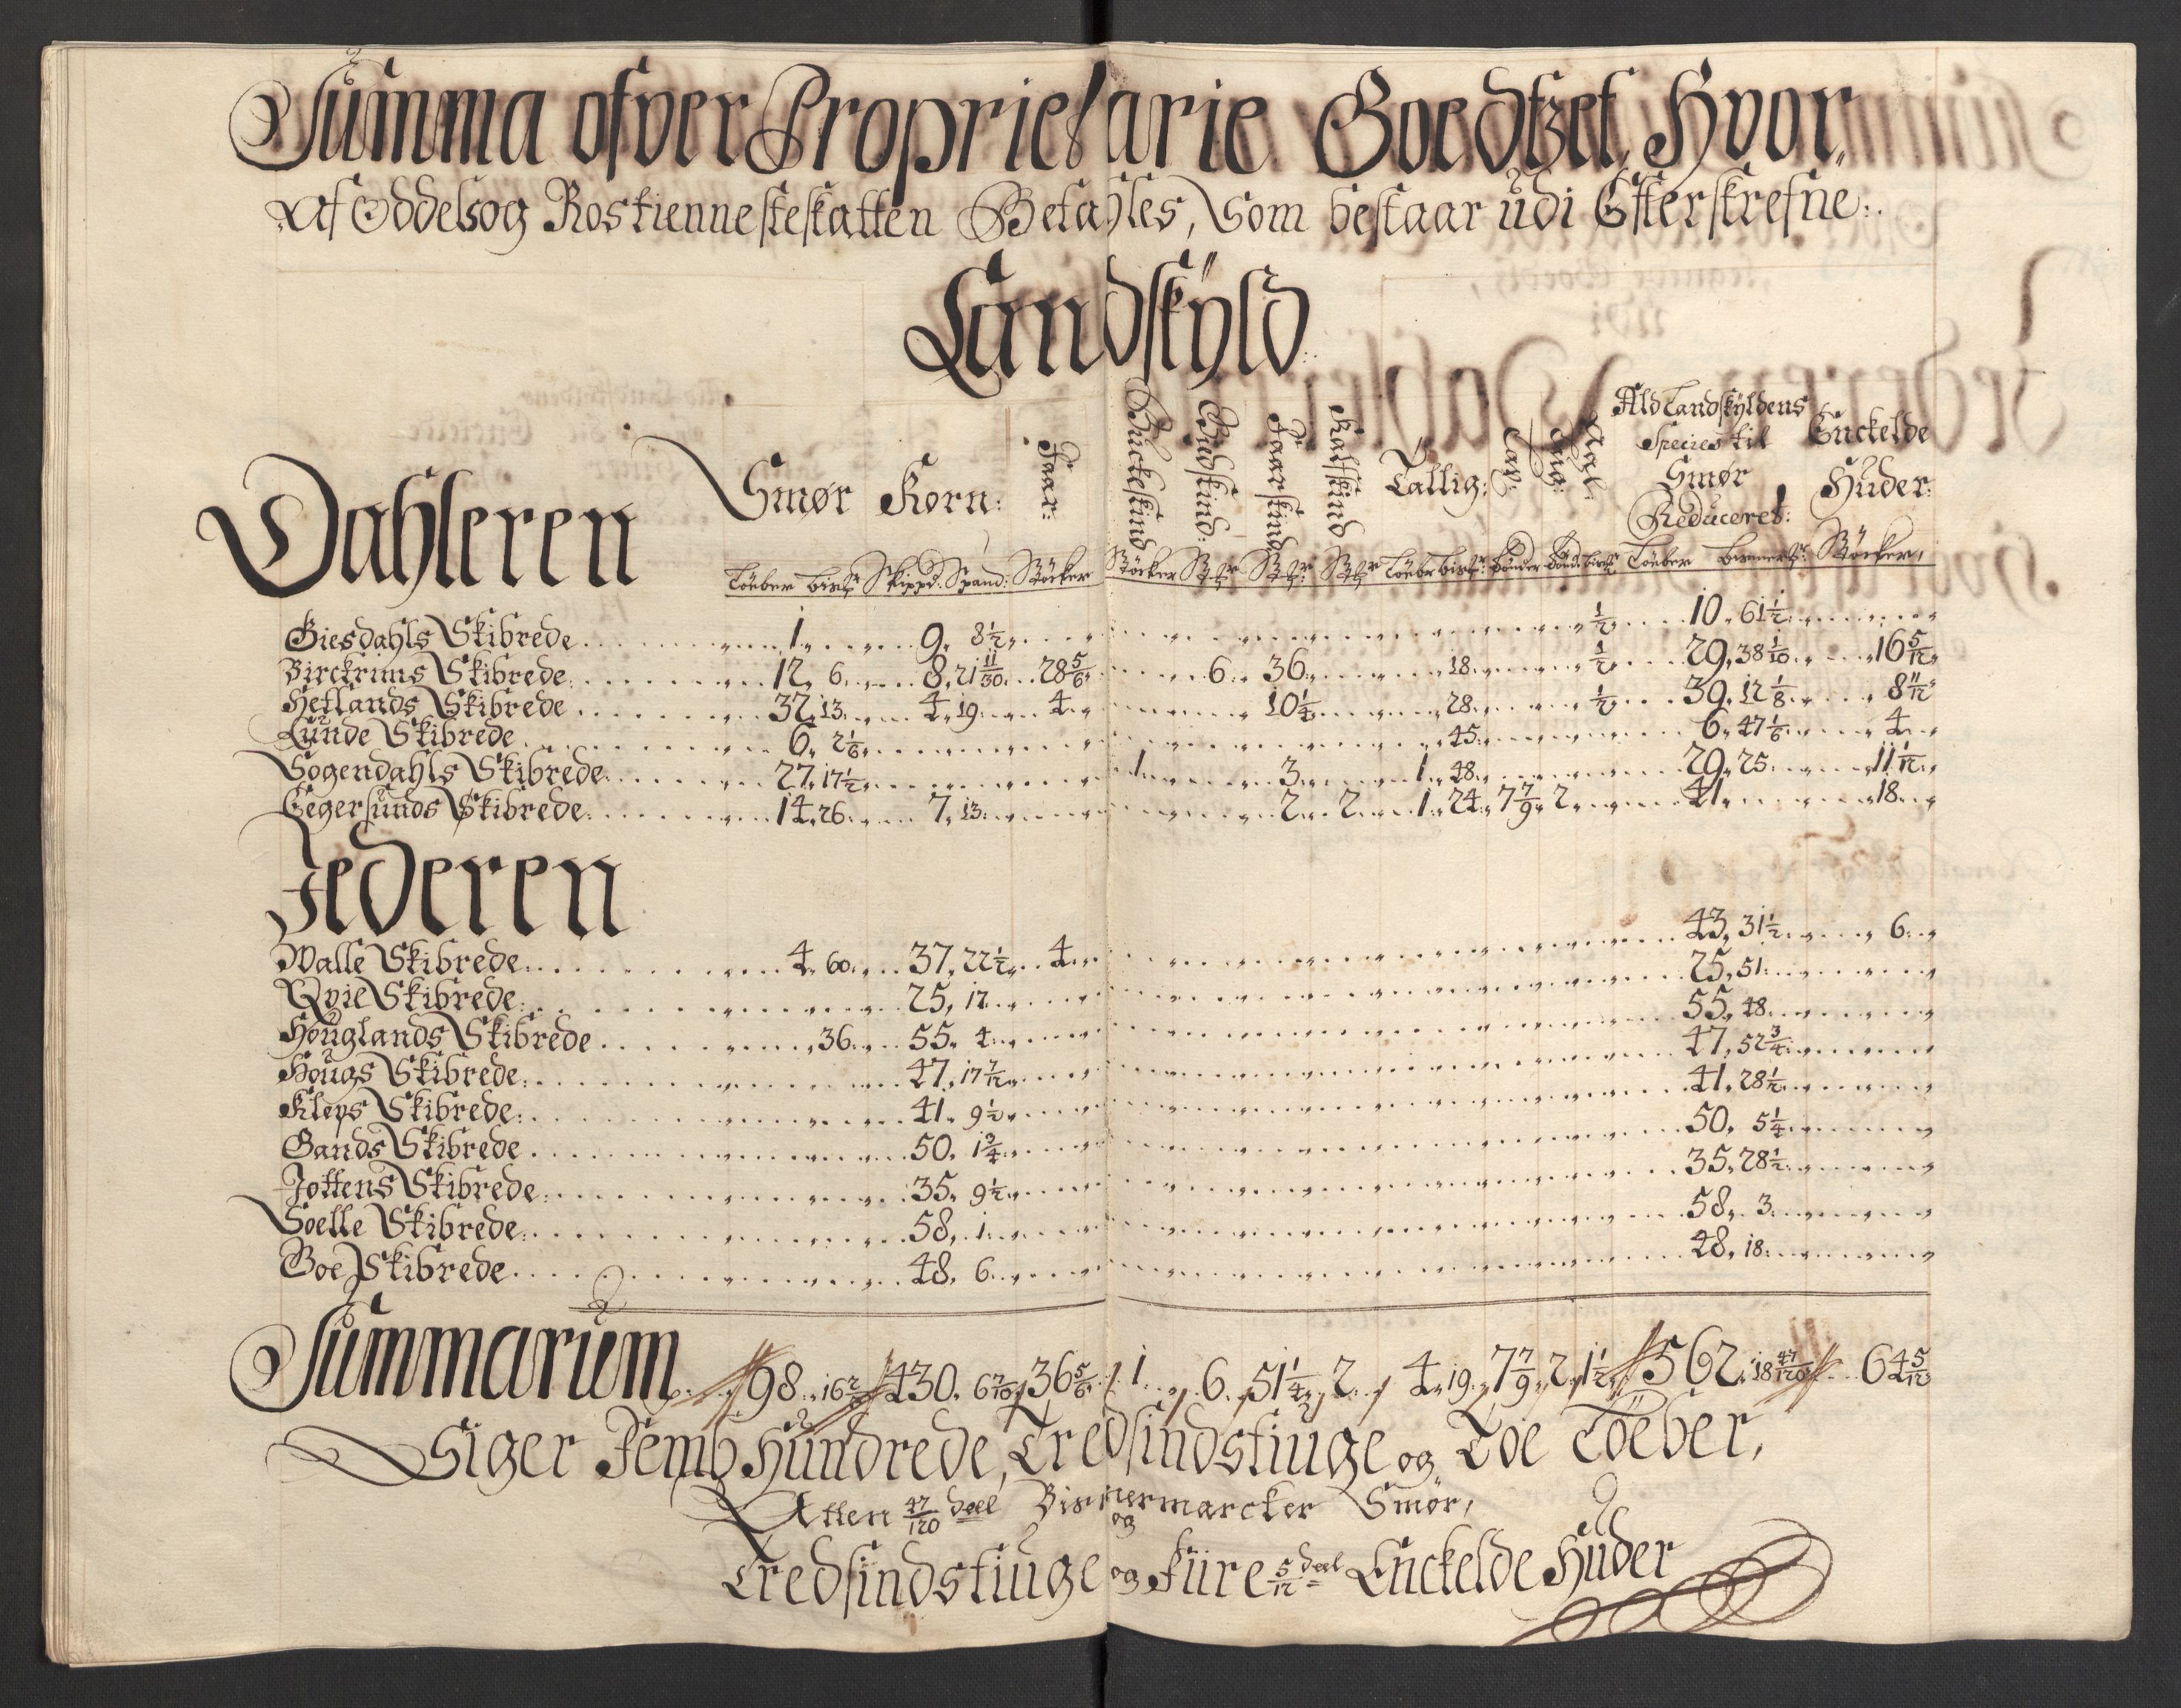 Summa ofver Proprietarie Goedtzet, Hvor„
Af Oddelsog Rostiennesteskatten Betahles, Som bestaar udi Efterskrefne:
Landskÿld
Dahleren
Smør Korn: Faar: Buckeskind Gudskind: Faarskind Kalfskind Tallig: Lax: Aal: Ald Landskÿldens Species til Smør Reduceret: Enckelde Huder:
Töeber Skippd: Spand: Støcker Støcker Töeber Støcker,
Giesdahls Skibrede 1 9, 8½ ½ 10, 61½
Birckrims Skibrede 12, 6 8, 21 11/30 28 5/6 6 36 18 ½ 29, 38 1/10 16 5/12
Hetlands Skibrede 32, 13 4, 19 4 10¼ 28 ½ 39, 12 1/8 8 11/12
Lunde Skibrede 6, 2 1/6 45 6, 47 1/6 4
Sogendahls Skibrede 27, 17½ 1 3 1, 48 29, 25 11 1/12
Eegersunds Skibrede 14, 26 7, 13 2 2 1, 24 7 7/9 2 41 18
Jederen
Walle Skibrede 4, 60 37, 22½ 4 43, 31½ 6
Qvie Skibrede 25, 17 25, 51
Houglands Skibrede 36 55, 4 55, 48
Hougs Skibrede 47, 17 7/12 47, 52¾
Kleps Skibrede 41, 9½ 41, 28½
Gands Skibrede 50, 1¾ 50, 5¼
Jottens Skibrede 35, 9½ 35, 28½
Soelle Skibrede 58, 1 58, 3
Goe Skibrede 48, 6 48, 18
Summarum 98, 16 2/3 430, 6 7/10 36 5/6 1 6 51¼ 2 4, 19 7 7/9 2 1½ 562, 18 47/120 64 5/12
Siger Femb Hundrede, Tredsindstiuge og Toe Töeber,
Atten 47/120 deel Bismermarcker Smør,
og
Tredsindstiuge og Fiire 5/12 deel Enckelde Huder